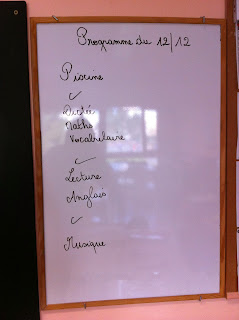 Programme du 12/12
Piscine
✓
Dictée
Maths
Vocabulaire
✓
Lecture
Anglais
✓
Musique